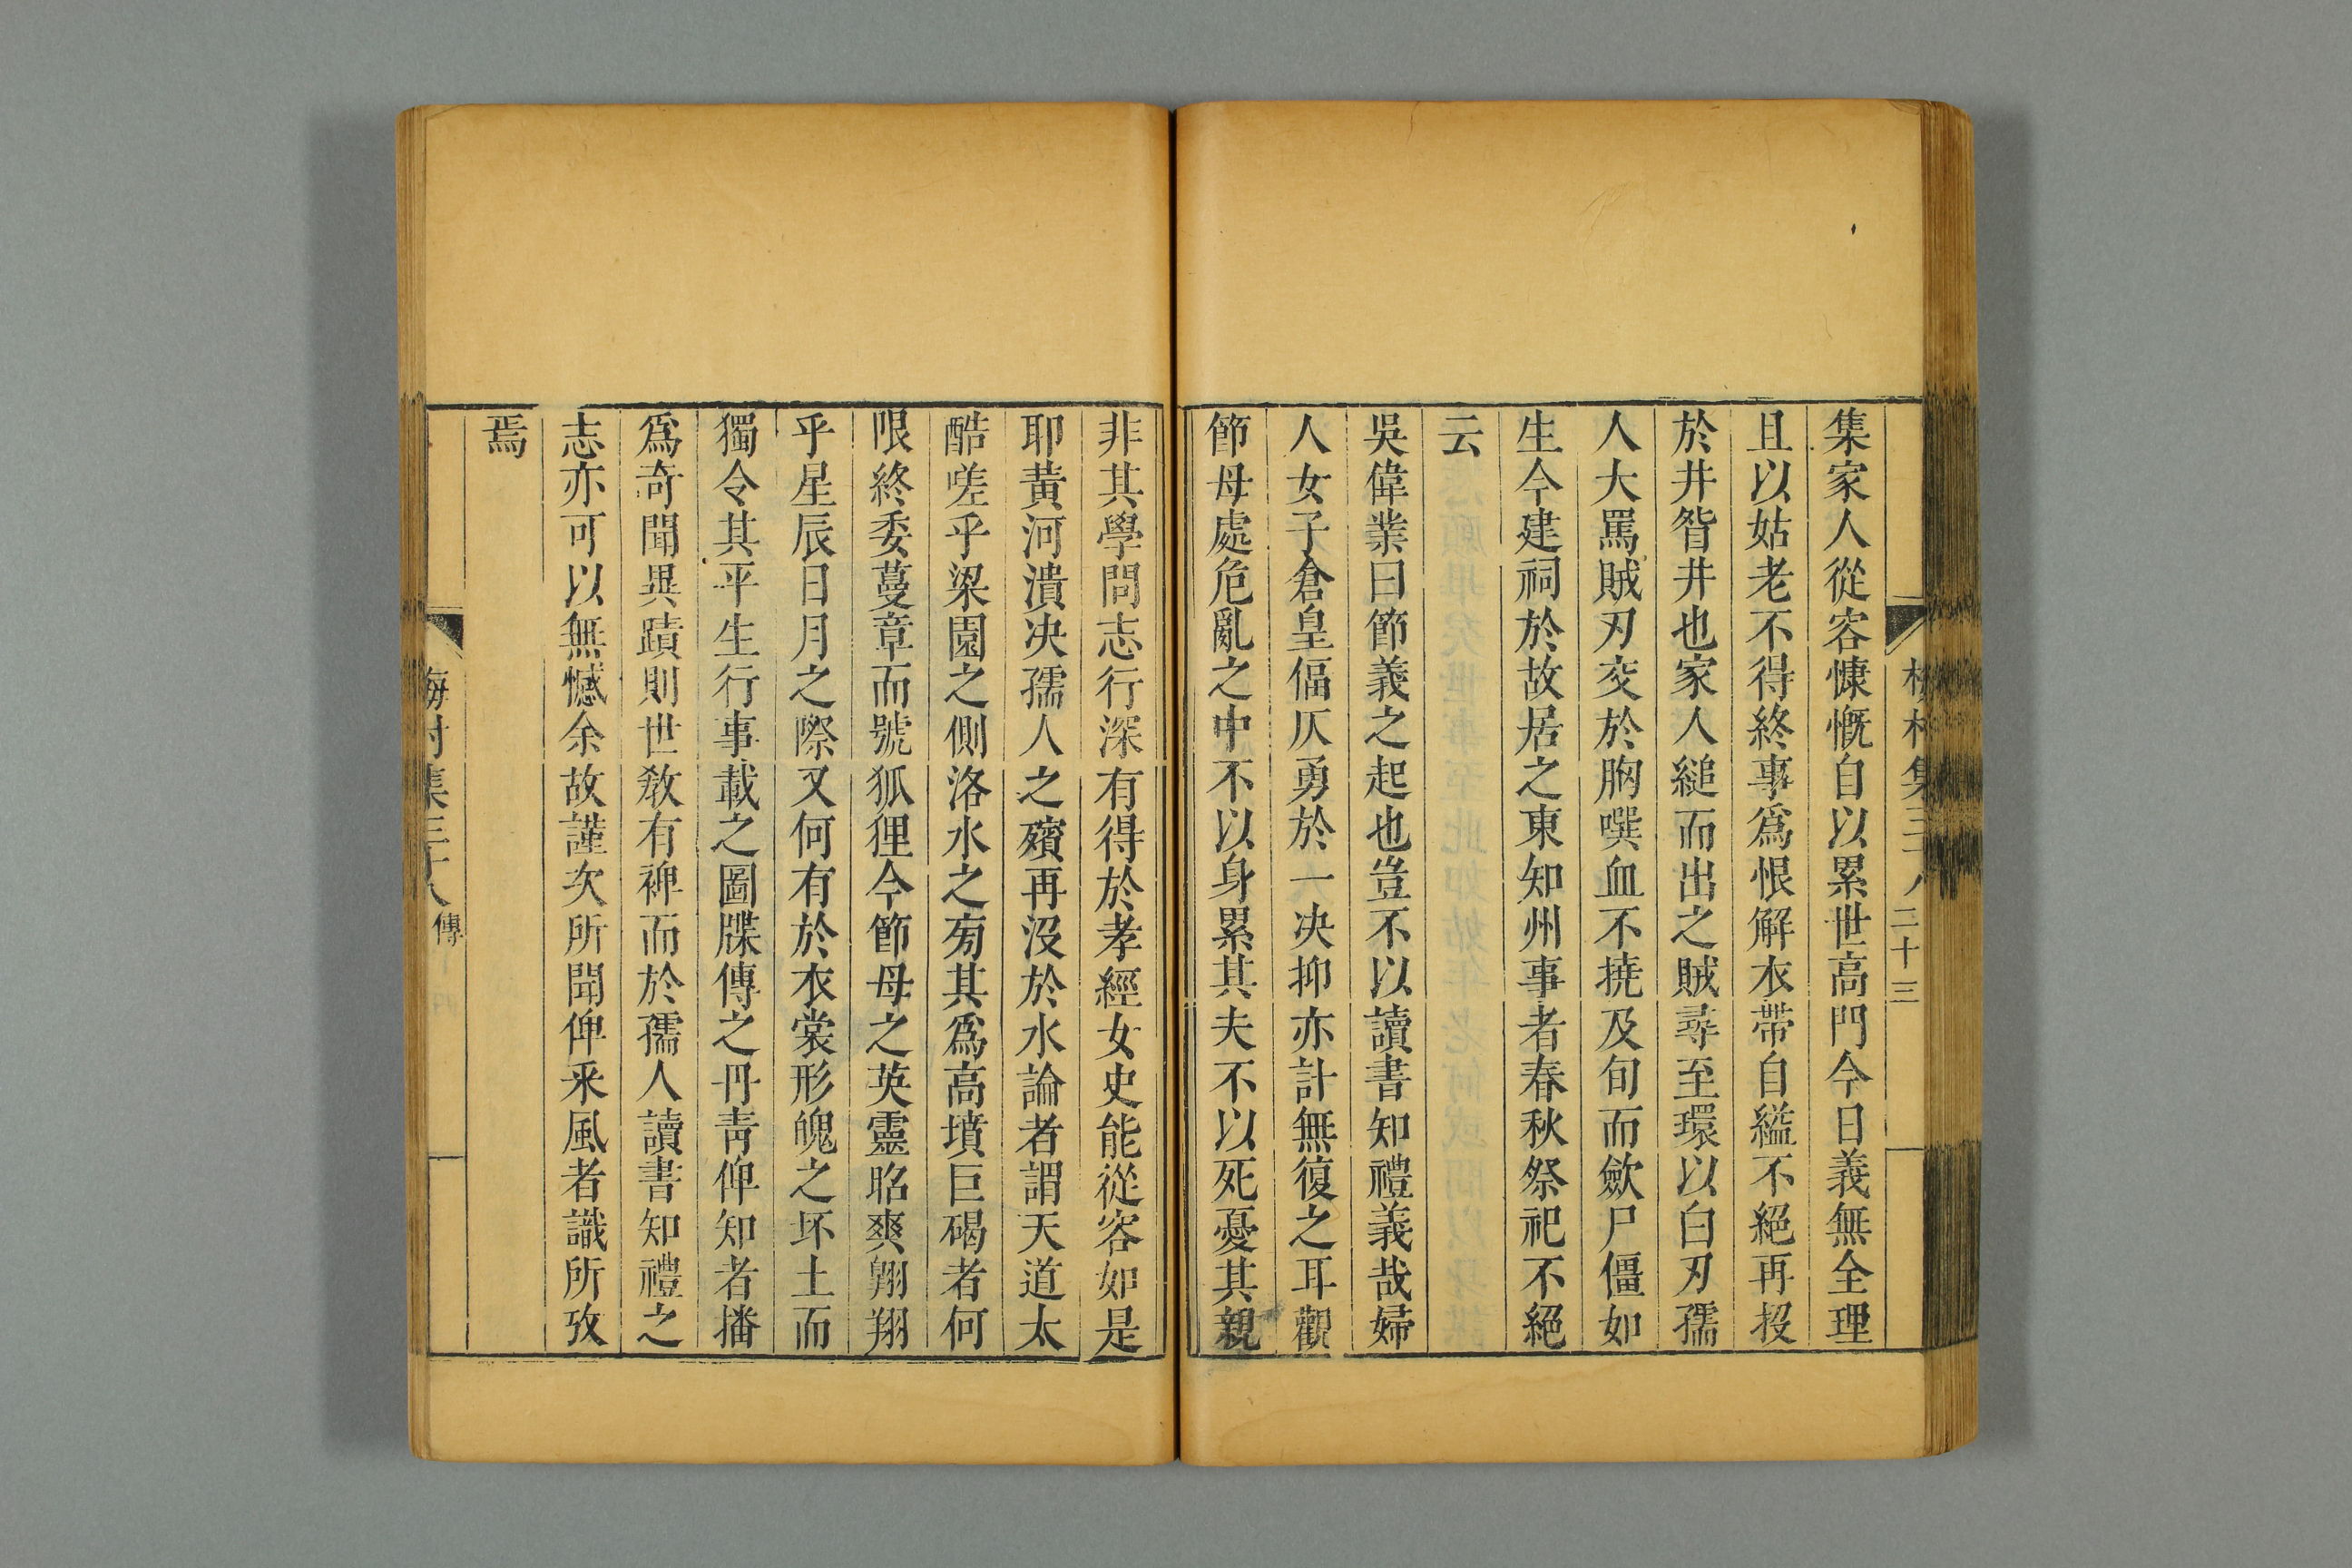 二十三
集家人從容慷慨自以累世高門今日義無全理
且以姑老不得終事爲恨解衣帶自縊不絕再投
於井眢井也家人縋而出之賊尋至環以白刃孺
人大罵賊刃交於胸噀血不撓及旬而歛尸僵如
生今建祠於故居之東知州事者春秋祭祀不絕
云
吳偉業曰節義之起也豈不以讀書知禮義哉婦
人女子倉皇偪仄勇於一决抑亦計無復之耳觀
節母處危亂之中不以身累其夫不以死憂其親
非其學問志行深有得於孝經女史能從容如是
耶黃河潰决孺人之殯再沒於水論者謂天道太
酷嗟乎梁園之側洛水之㫄其爲高墳巨碣者何
限終委蔓草而號狐狸今節母之英靈昭爽翺翔
乎星辰日月之際又何有於衣裳形魄之坏土而
獨令其平生行事載之圖牒傳之丹靑俾知者播
爲奇聞異蹟則世敎有裨而於孺人讀書知禮之
志亦可以無憾余故謹次所聞俾采風者識所攷
焉
梅村集三十八 傳